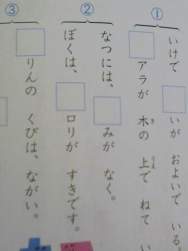 ①
いけて □ いが およいで いる
□ アラが 木の 上で ねて い
②
なつには、□ みが なく。
ぼくは、□ ロリが すきです。
③
□ りんの くびは、ながい。